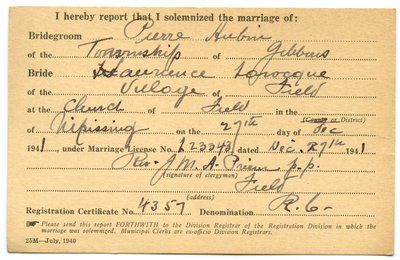 I hereby report that I solemnized the marriage of:
Bridegroom Pierre Aubin
of the Township of Gibbons
Bride Laurence Larocque
of the Village of Field
at the Church of Field in the (County or District)
of Nipissing on the 27th day of Dec
1941 under Marriage License No. 123343 dated Dec. 27th 1941
Rev. J M. A. p.p.
(signature of clergyman)
Field
(address)
Registration Certificate No. 4357 Denomination R. C.
Please send this report FORTHWITH to the Division Registrar of the Registration Division in which the
marriage was solemnized. Municipal Clerks are ex-officio Division Registrars.
25M—July, 1940